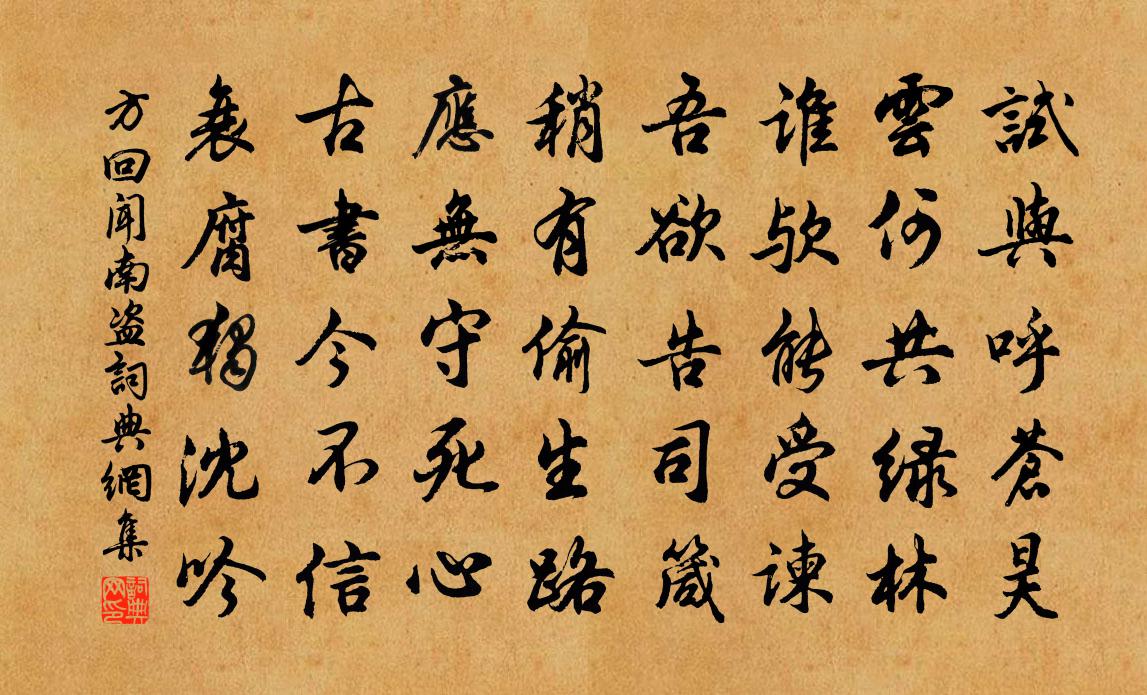 試與呼蒼昊
雲何共緑林
誰欤能受諫
吾欲告司箴
稍有偷生路
應無守死心
古書今不信
衰腐獨沈吟
方回聞南盗詞典網集
詞典网印